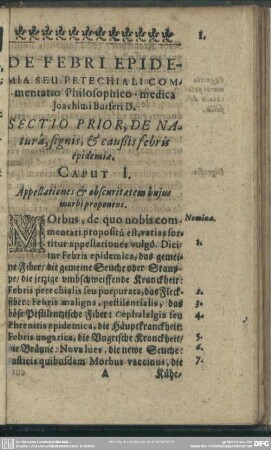 1.
DE FEBRI EPIDE-
MIA SEU PETECHIALI COM-
mentatio Philosophico-medica
Joachimi Burseri D.
SECTIO PRIOR, DE NA-
turâ, signis, & causis febris
epidemiæ.
CAPUT I.
Appellationes & obscuritatem hujus
morbi proponens.
MOrbus, de quo nobis com-
mentari propositū est, varias sor-
titur appellationes vulgò. Dici-
tur Febris epidemica, das gemei-
ne Fiber: die gemeine Seuche oder Staup-
pe: die jetzige umbschweiffende Kranckheit:
Febris petechialis seu purpurata, das Fleck-
fiber: Febris maligna, pestilentialis, das
böse Pestilentzische Fiber: Cephalalgia seu
Phrenitis epidemica, die Häuptkranckheit:
Febris ungarica, die Ungrische Kranckheit/
die Bräune: Nova lues, die newe Seuche:
rusticis quibusdam Morbus vaccinus, die
A Kühe-
Nomina.
1.
2.
3.
4.
5.
6.
7.